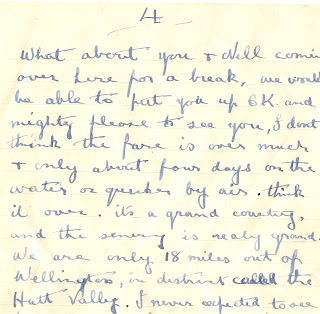 4
What about you & Nell comin
over here for a break, we would
be able to put you up O.K. and
mighty please to see you, I dont
think the fare is over much
& only about four days on the
water or quicker by air. think
it over. its a grand country,
and the senery is realy grand.
We are only 18 miles out of
Wellington, in district called the
Hutt Valley. I never expected to see